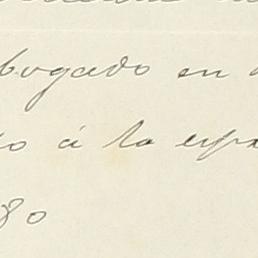 bogado en
o á la espo
80